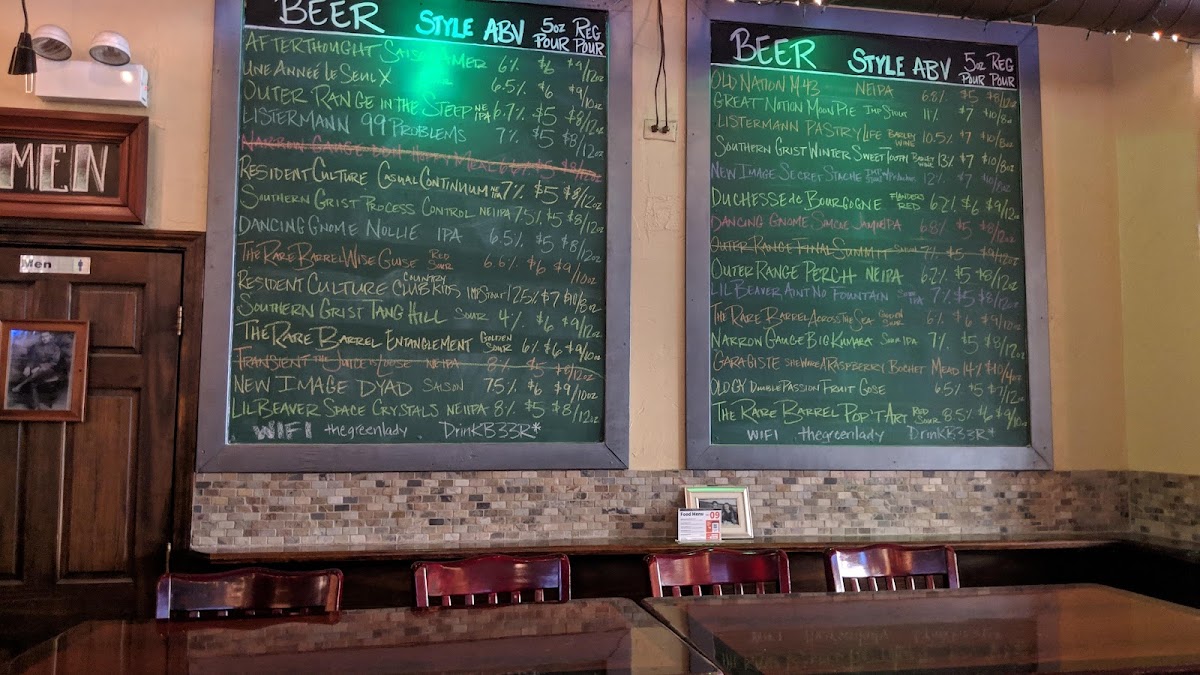 MEN
Men
BEER STYLE ABV 5oz POUR REG POUR
AFTERTHOUGHT SAISON AMER 6% $6 $9/12oz
UNE ANNEÉ LE SEUL X 6.5% $6 $9/10oz
OUTER RANGE IN THE STEEP NE IPA 6.7% $5 $8/12oz
LISTERMANN 99 PROBLEMS 7% $5 $8/12oz
NARROW GAUGE
RESIDENT CULTURE CASUAL CONTINUUM 7% $5 $8/12oz
SOUTHERN GRIST PROCESS CONTROL NEIIPA 7.5% $5 $8/12oz
DANCING GNOME NOLLIE IPA 6.5% $5 $8/12oz
THE RARE BARREL WISE GUISE RED SOUR 6.6% $6 $9/10oz
RESIDENT CULTURE COUNTRY CLUB KIDS IMP STOUT 12.5% $7 $10/8oz
SOUTHERN GRIST TANG HILL SOUR 4% $6 $9/12oz
THE RARE BARREL ENTANGLEMENT GOLDEN SOUR 6% $6 $9/10oz
TRANSIENT THE JUICE IS LOOSE NEIPA 8% $5 $8/12oz
NEW IMAGE DYAD SAISON 7.5% $6 $9/10oz
LIL BEAVER SPACE CRYSTALS NEIIPA 8% $5 $8/12oz
WIFI thegreenlady DrinKB33R*
BEER STYLE ABV 5oz POUR REG POUR
OLD NATION M43 NEIPA 6.8% $5 $8/12oz
GREAT NOTION MOON PIE IMP STOUT 11% $7 $10/8oz
LISTERMANN PASTRY LIFE BARLEY WINE 10.5% $7 $10/8oz
SOUTHERN GRIST WINTER SWEET TOOTH BARLEY WINE 13% $7 $10/8oz
NEW IMAGE SECRET STACHE IMP STOUT 12% $7 $10/8oz
DUCHESSE de BOURGOGNE FLANDERS RED 6.2% $6 $9/12oz
DANCING GNOME IPA 6.8% $5 $8/12oz
OUTER RANGE FINAL SUMMIT 7% $5 $9/12oz
OUTER RANGE PERCH NEIPA 6.2% $5 $8/12oz
LIL BEAVER AINT NO FOUNTAIN SOUR IPA 7% $5 $8/12oz
THE RARE BARREL ACROSS THE SEA GOLDEN SOUR 6% $6 $9/12oz
NARROW GAUGE BIG KUMARA SOUR IPA 7% $5 $8/12oz
GARAGISTE SHE WORE A RASPBERRY BOCHET MEAD 14% $10/4oz
OLD GY DOUBLE PASSION FRUIT GOSE 6.5% $5 $7/12oz
THE RARE BARREL POP'T ART RED SOUR 8.5% $6 $9/10oz
WIFI thegreenlady DrinKB33R*
Food Menu 09